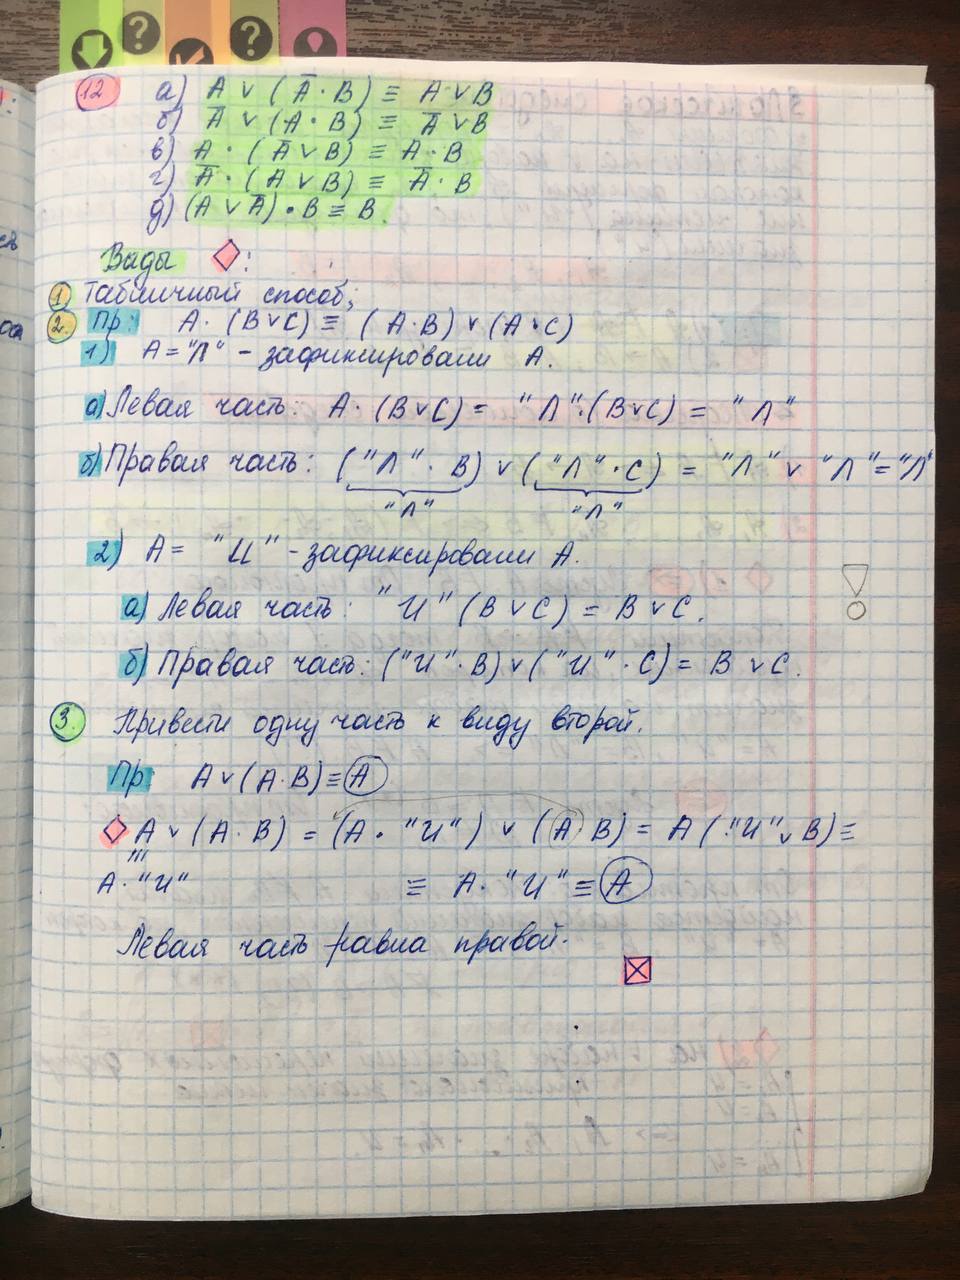 12 а) A ∨ (Ā · B) ≡ A ∨ B
б) Ā ∨ (A · B) ≡ Ā ∨ B
в) A · (Ā ∨ B) ≡ A · B
г) Ā · (A ∨ B) ≡ Ā · B
д) (A ∨ Ā) · B ≡ B.
Виды ◇:
1 Табличный способ;
2. Пр: A · (B ∨ C) ≡ (A · B) ∨ (A · C)
1) A = "Л" - зафиксировали A.
а) Левая часть: A · (B ∨ C) = "Л" · (B ∨ C) = "Л"
б) Правая часть: ("Л" · B) ∨ ("Л" · C) = "Л" ∨ "Л" = "Л"
"Л" "Л"
2) A = "И" - зафиксировали A.
а) Левая часть: "И" (B ∨ C) = B ∨ C.
б) Правая часть: ("И" · B) ∨ ("И" · C) = B ∨ C.
3. Привести одну часть к виду второй.
Пр: A ∨ (A · B) ≡ A
◇ A ∨ (A · B) = (A · "И") ∨ (A · B) = A ("И" ∨ B) ≡
A · "И" ≡ A · "И" ≡ A
Левая часть равна правой.